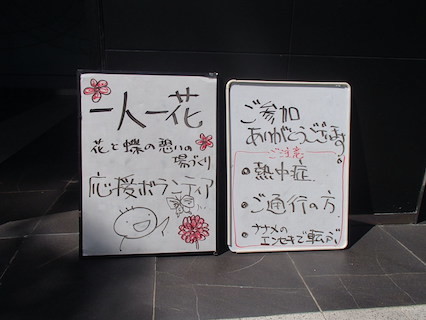 一人一花
花と蝶の憩いの
場づくり
応援ボランティア
ご参加
ありがとうございます
ご注意
熱中症
ご通行の方
ナナメの
エンセキで転ぶ